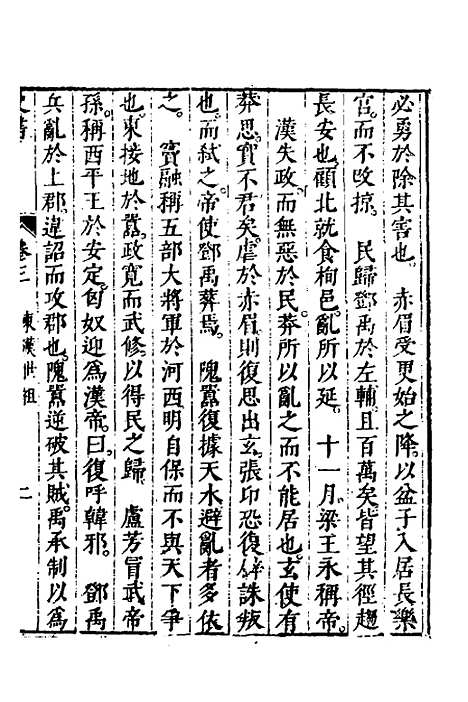 必勇於除其害也。　赤眉受更始之降。以盆子入居長樂
宫。而不攻掠。　民歸鄧禹於左輔。且百萬矣。皆望其徑趨
長安也。顧北就食栒邑。亂所以延。　十一月。梁王永稱帝。
漢失政而無惡於民。莽所以亂之而不能居也。玄使有
莽思。實不君矣。虐於赤眉。則復思出玄。張卬恐復
誅叛
也。而弑之。帝使鄧禹葬焉。　隗囂復據天水。避亂者多依
之。　竇融稱五部大將軍於河西。明自保而不與天下爭
也。東接地於囂。政寛而武修。以得民之歸。　盧芳冒武帝
孫。稱西平王於安定。匈奴迎爲漢帝。曰。復呼韓邪。　鄧禹
兵亂於上郡。違詔而攻郡也。隗囂逆破其賊。禹承制以爲
卷三　東漢世祖　二